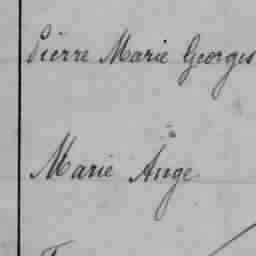 Pierre Marie Georges
Marie Ange